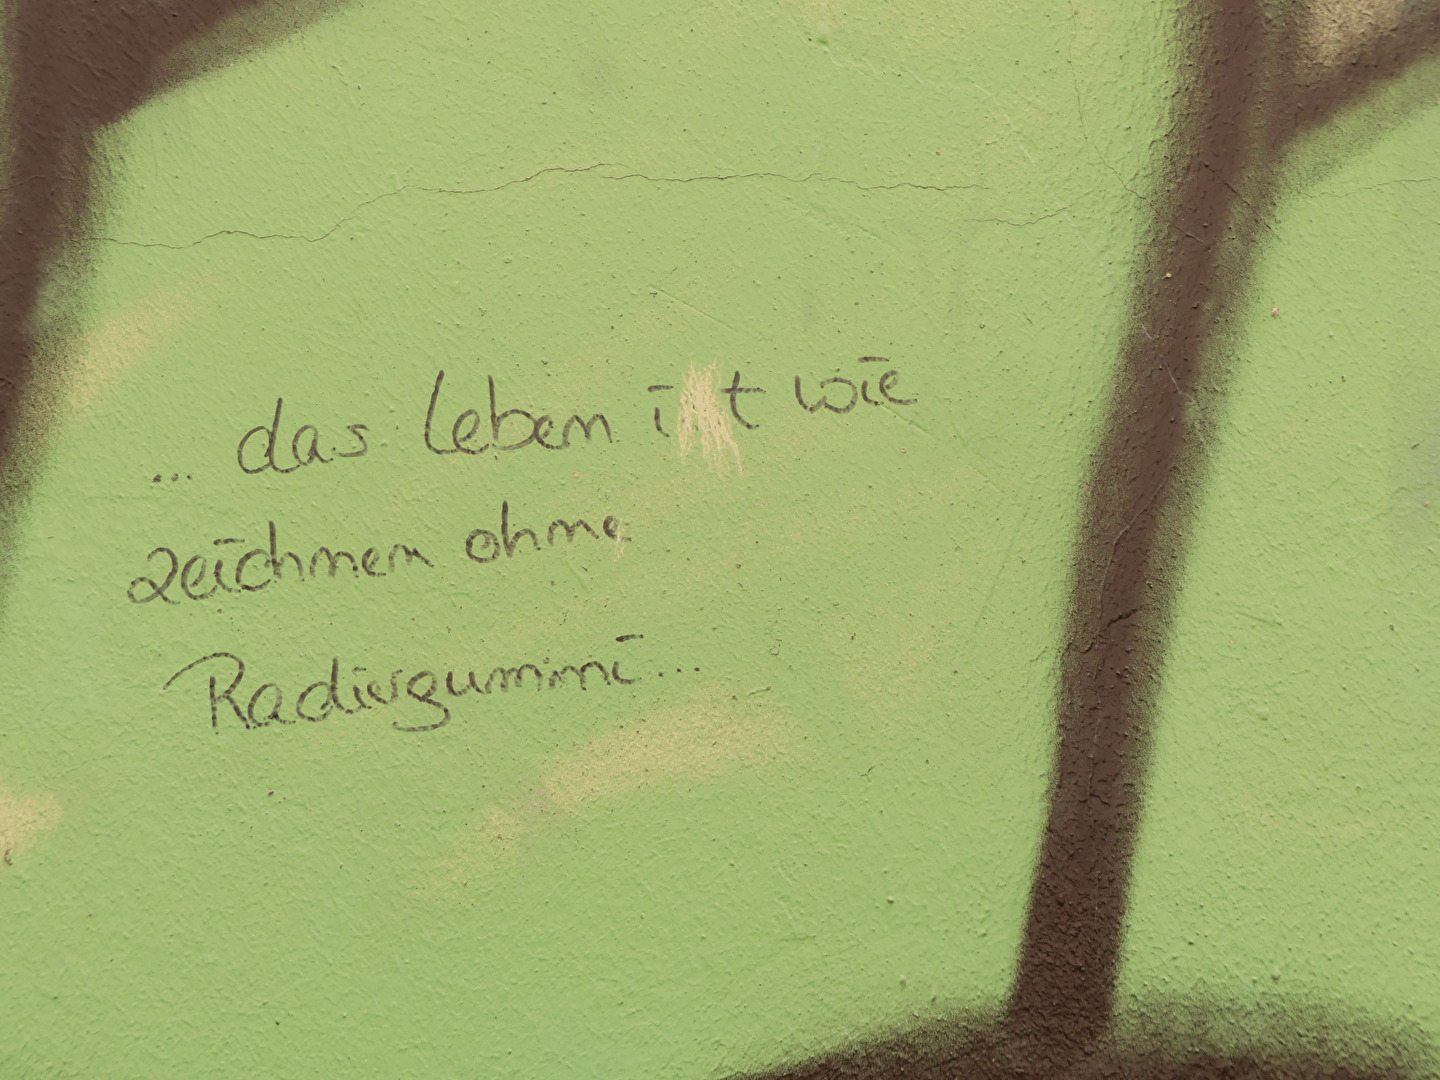 ... das Leben i t wie
zeichnen ohne
Radiergummi...